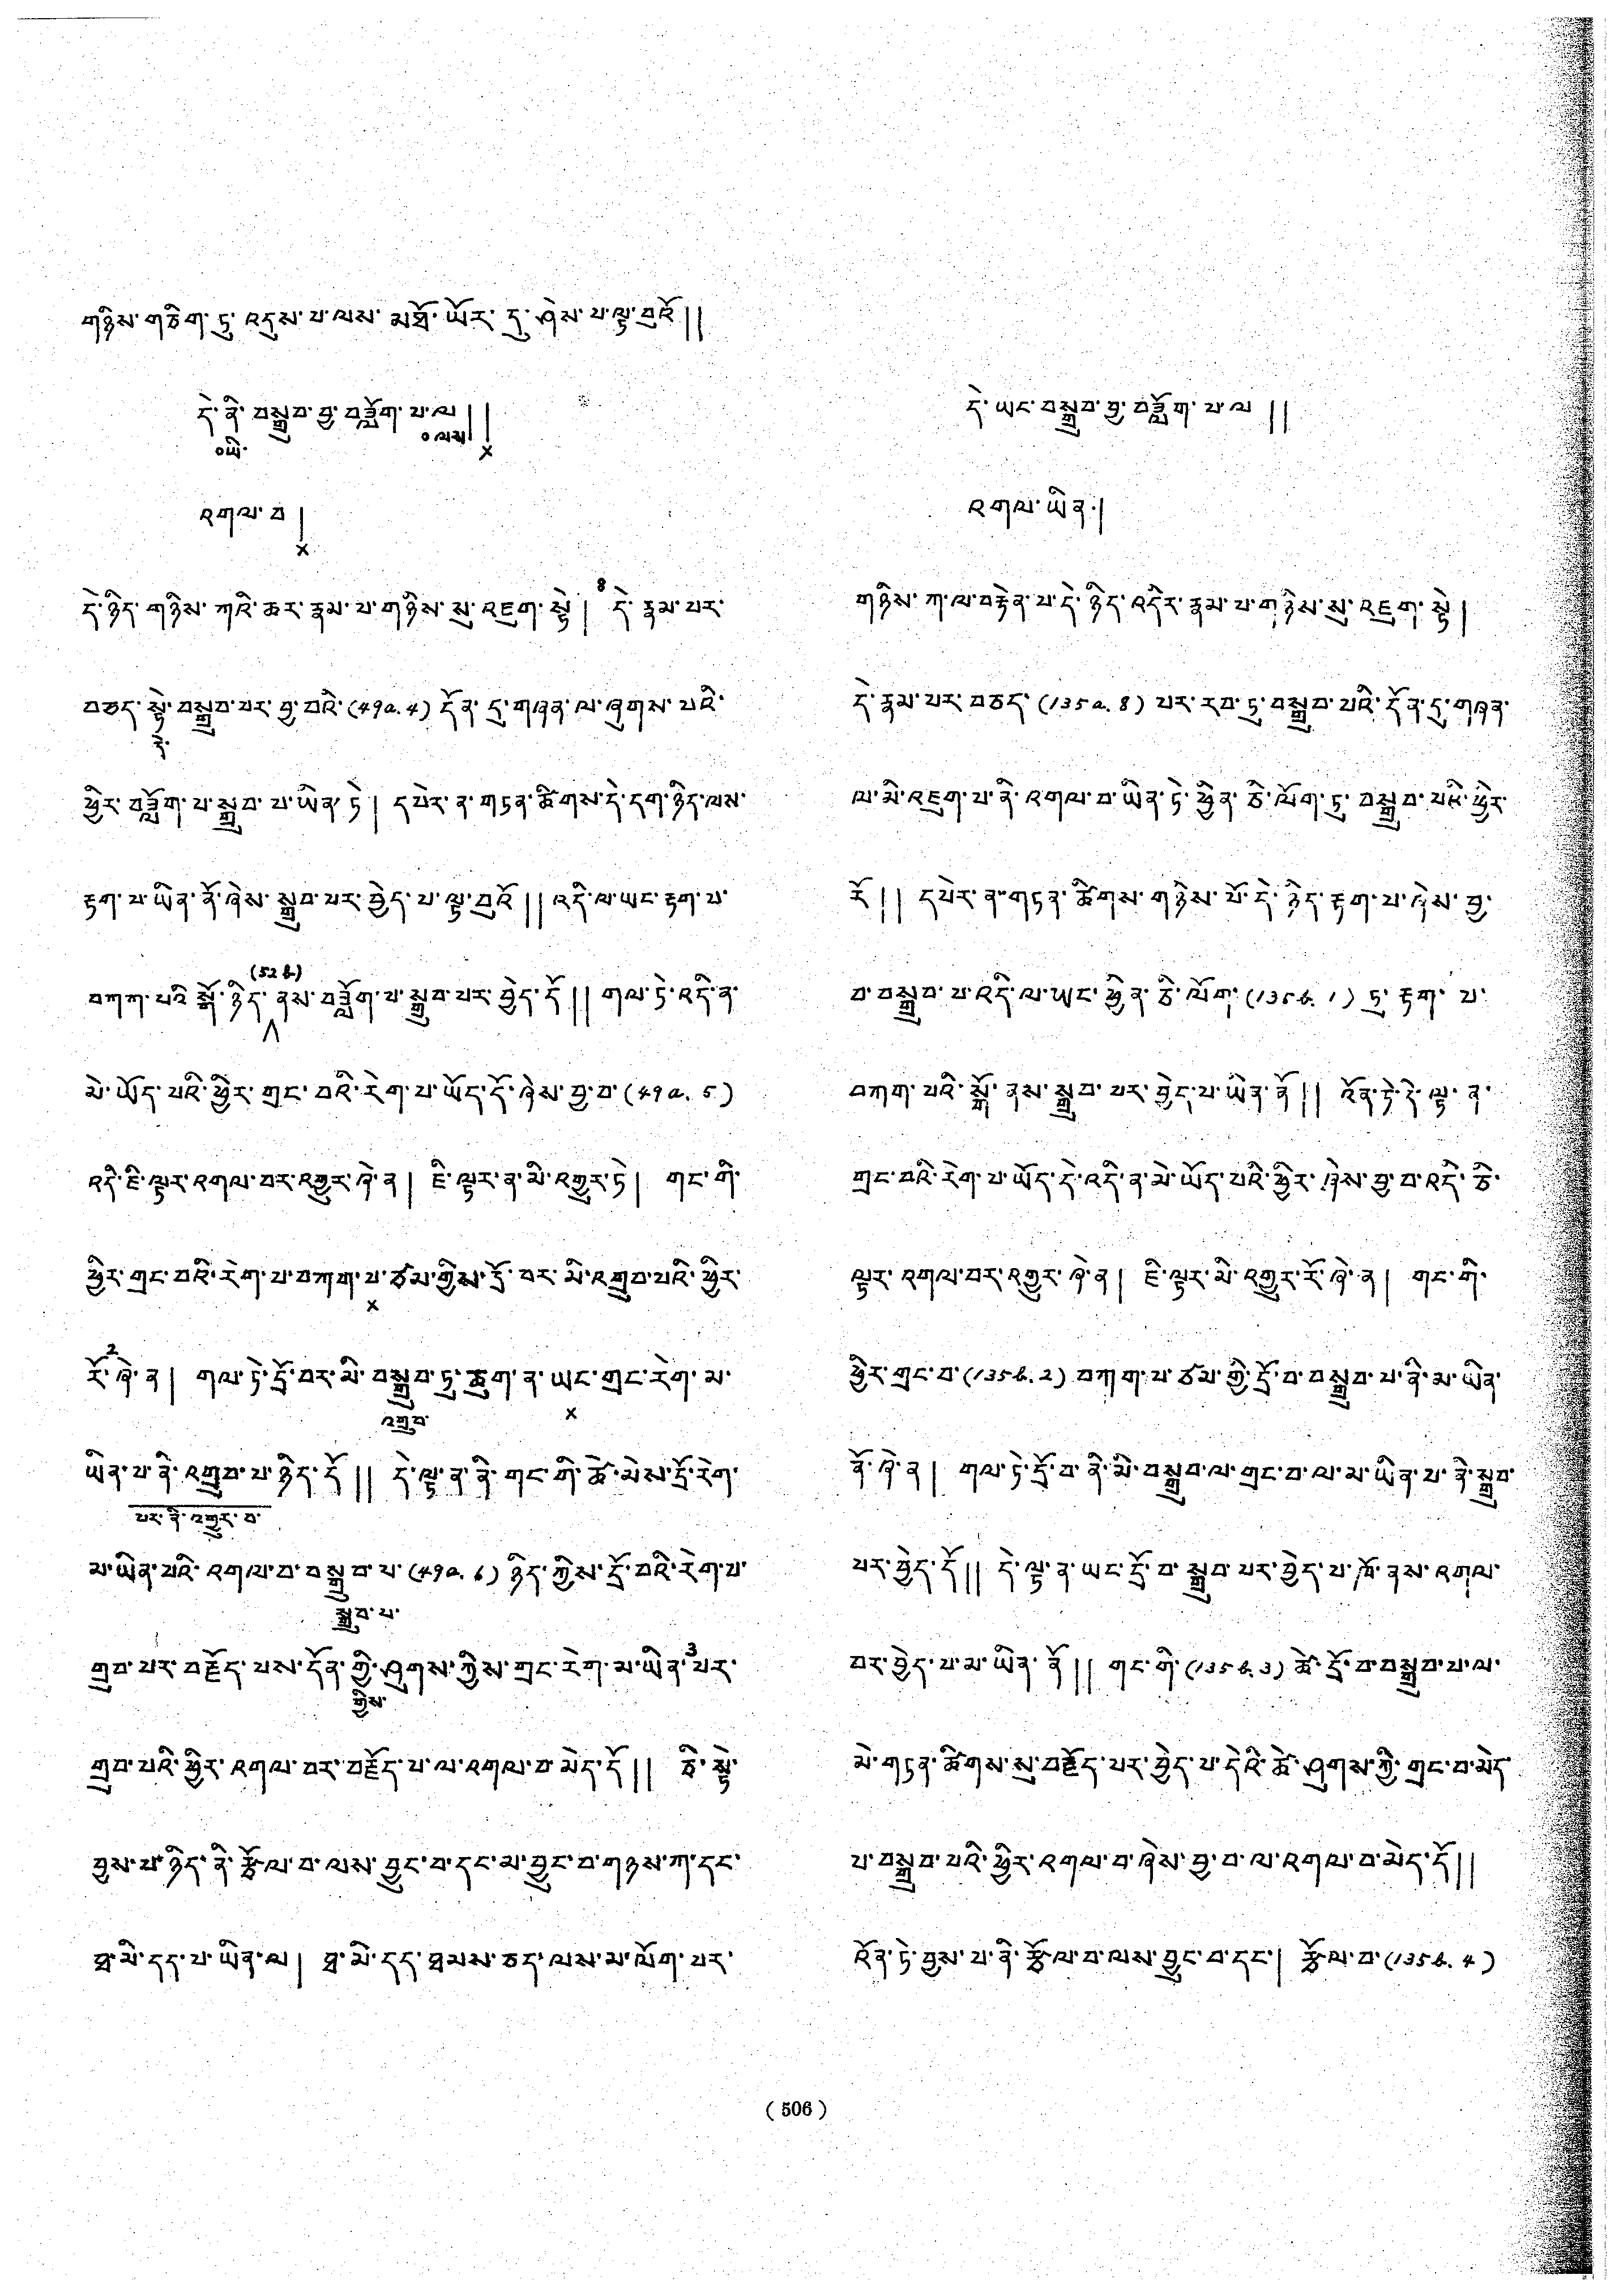 གཉིས་གཅིག་ཏུ་འདུས་པ་ལས་མཐོ་ཡོར་དུ་ཤེས་པ་ལྟ་བུའོ།།
དེ་ནི་བསྒྲུབ་བྱ་བཟློག་པ་ལ།།
༠ཡི་ ༠ལས། ×
འགལ་བ།
×
དེ་ཉིད་གཉིས་ཀའི་ཆར་རྣམ་པ་གཉིས་སུ་འཇུག་སྟེ། 8 དེ་རྣམ་པར་
བཅད་སྟེ་བསྒྲུབ་པར་བྱ་བའི་(49a.4) དོན་དུ་གཞན་ལ་ཞུགས་པའི་
དེ་
ཕྱིར་བཟློག་པ་སྒྲུབ་པ་ཡིན་ཏེ། དཔེར་ན་གཏན་ཚིགས་དེ་དག་ཉིད་ལས་
རྟག་པ་ཡིན་ནོ་ཞེས་སྒྲུབ་པར་བྱེད་པ་ལྟ་བུའོ།། འདི་ལ་ཡང་རྟག་པ་
(52b)
བཀག་པའི་སྒོ་ཉིད་ནས་བཟློག་པ་སྒྲུབ་པར་བྱེད་དོ།། གལ་ཏེ་འདི་ན་
མེ་ཡོད་པའི་ཕྱིར་གྲང་བའི་རེག་པ་ཡོད་དོ་ཞེས་བྱ་བ་(49a.5)
འདི་ཇི་ལྟར་འགལ་བར་འགྱུར་ཞེ་ན། ཇི་ལྟར་ན་མི་འགྱུར་ཏེ། གང་གི་
ཕྱིར་གྲང་བའི་རེག་པ་བཀག་པ་ཙམ་གྱིས་དྲོ་བར་མི་འགྲུབ་པའི་ཕྱིར་
×
རོ་2་ཞེ་ན། གལ་ཏེ་དྲོ་བར་མི་བསྒྲུབ་ཏུ་ཆུག་ན་ཡང་གྲང་རེག་མ་
འགྲུབ་ ×
ཡིན་པ་ནི་འགྲུབ་པ་ཉིད་དོ།། དེ་ལྟ་ན་ནི་གང་གི་ཚེ་མེས་དྲོ་རེག་
པར་ནི་འགྱུར་བ་
མ་ཡིན་པའི་འགལ་བ་བསྒྲུབ་པ་(49a.6) ཉིད་ཀྱིས་དྲོ་བའི་རེག་པ་
སྒྲུབ་པ་
གྲུབ་པར་བརྗོད་པས་དོན་གྱི་ཤུགས་ཀྱིས་གྲང་རེག་མ་ཡིན་3པར་
གྱིས་
གྲུབ་པའི་ཕྱིར་འགལ་བར་བརྗོད་པ་ལ་འགལ་བ་མེད་དོ།། ཅི་སྟེ་
བྱས་པ་ཉིད་ནི་རྩོལ་བ་ལས་བྱུང་བ་དང་མ་བྱུང་བ་གཉས་ཀ་དང་
ཐ་མི་དད་པ་ཡིན་ལ། ཐ་མི་དད་ཐམས་ཅད་ལས་མ་ལོག་པར་
དེ་ཡང་བསྒྲུབ་བྱ་བཟློག་པ་ལ །།
འགལ་ཡིན་།
གཉིས་ཀ་ལ་བརྟེན་པ་དེ་ཉིད་འདིར་རྣམ་པ་གཉིས་སུ་འཇུག་སྟེ།
དེ་རྣམ་པར་བཅད་(135a.8) པར་རབ་ཏུ་བསྒྲུབ་པའི་དོན་དུ་གཞན་
ལ་མི་འཇུག་པ་ནི་འགལ་བ་ཡིན་ཏེ་ཕྱིན་ཅི་ལོག་ཏུ་བསྒྲུབ་པའི་ཕྱིར་
རོ།། དཔེར་ན་གཏན་ཚིགས་གཉིས་པོ་དེ་ཉིད་རྟག་པ་ཞེས་བྱ་
བ་བསྒྲུབ་པ་འདི་ལ་ཡང་ཕྱིན་ཅི་ལོག་(135b.1) ཏུ་རྟག་པ་
བཀག་པའི་སྒོ་ནས་སྒྲུབ་པར་བྱེད་པ་ཡིན་ནོ།། འོན་ཏེ་དེ་ལྟ་ན་
གྲང་བའི་རེག་པ་ཡོད་དེ་འདི་ན་མེ་ཡོད་པའི་ཕྱིར་ཞེས་བྱ་བ་འདི་ཅི་
ལྟར་འགལ་བར་འགྱུར་ཞེ་ན། ཇི་ལྟར་མི་འགྱུར་རོ་ཞེ་ན། གང་གི་
ཕྱིར་གྲང་བ་(135b.2) བཀག་པ་ཙམ་གྱི་དྲོ་བ་བསྒྲུབ་པ་ནི་མ་ཡིན་
ནོ་ཞེ་ན། གལ་ཏེ་དྲོ་བ་ནི་མི་བསྒྲུབ་ལ་གྲང་བ་ལ་མ་ཡིན་པ་ནི་སྒྲུབ་
པར་བྱེད་དོ།། དེ་ལྟ་ན་ཡང་དྲོ་བ་སྒྲུབ་པར་བྱེད་པ་ཁོ་ནས་འགལ་
བར་བྱེད་པ་མ་ཡིན་ནོ།། གང་གི་(135b.3) ཚེ་དྲོ་བ་བསྒྲུབ་པ་ལ་
མེ་གཏན་ཚིགས་སུ་བརྗོད་པར་བྱེད་པ་དེའི་ཚེ་ཤུགས་ཀྱི་གྲང་བ་མེད་
པ་བསྒྲུབ་པའི་ཕྱིར་འགལ་བ་ཞེས་བྱ་བ་ལ་འགལ་བ་མེད་དོ།།
འོན་ཏེ་བྱས་པ་ནི་རྩོལ་བ་ལས་བྱུང་བ་དང་། རྩོལ་བ་(135b.4)
(506)